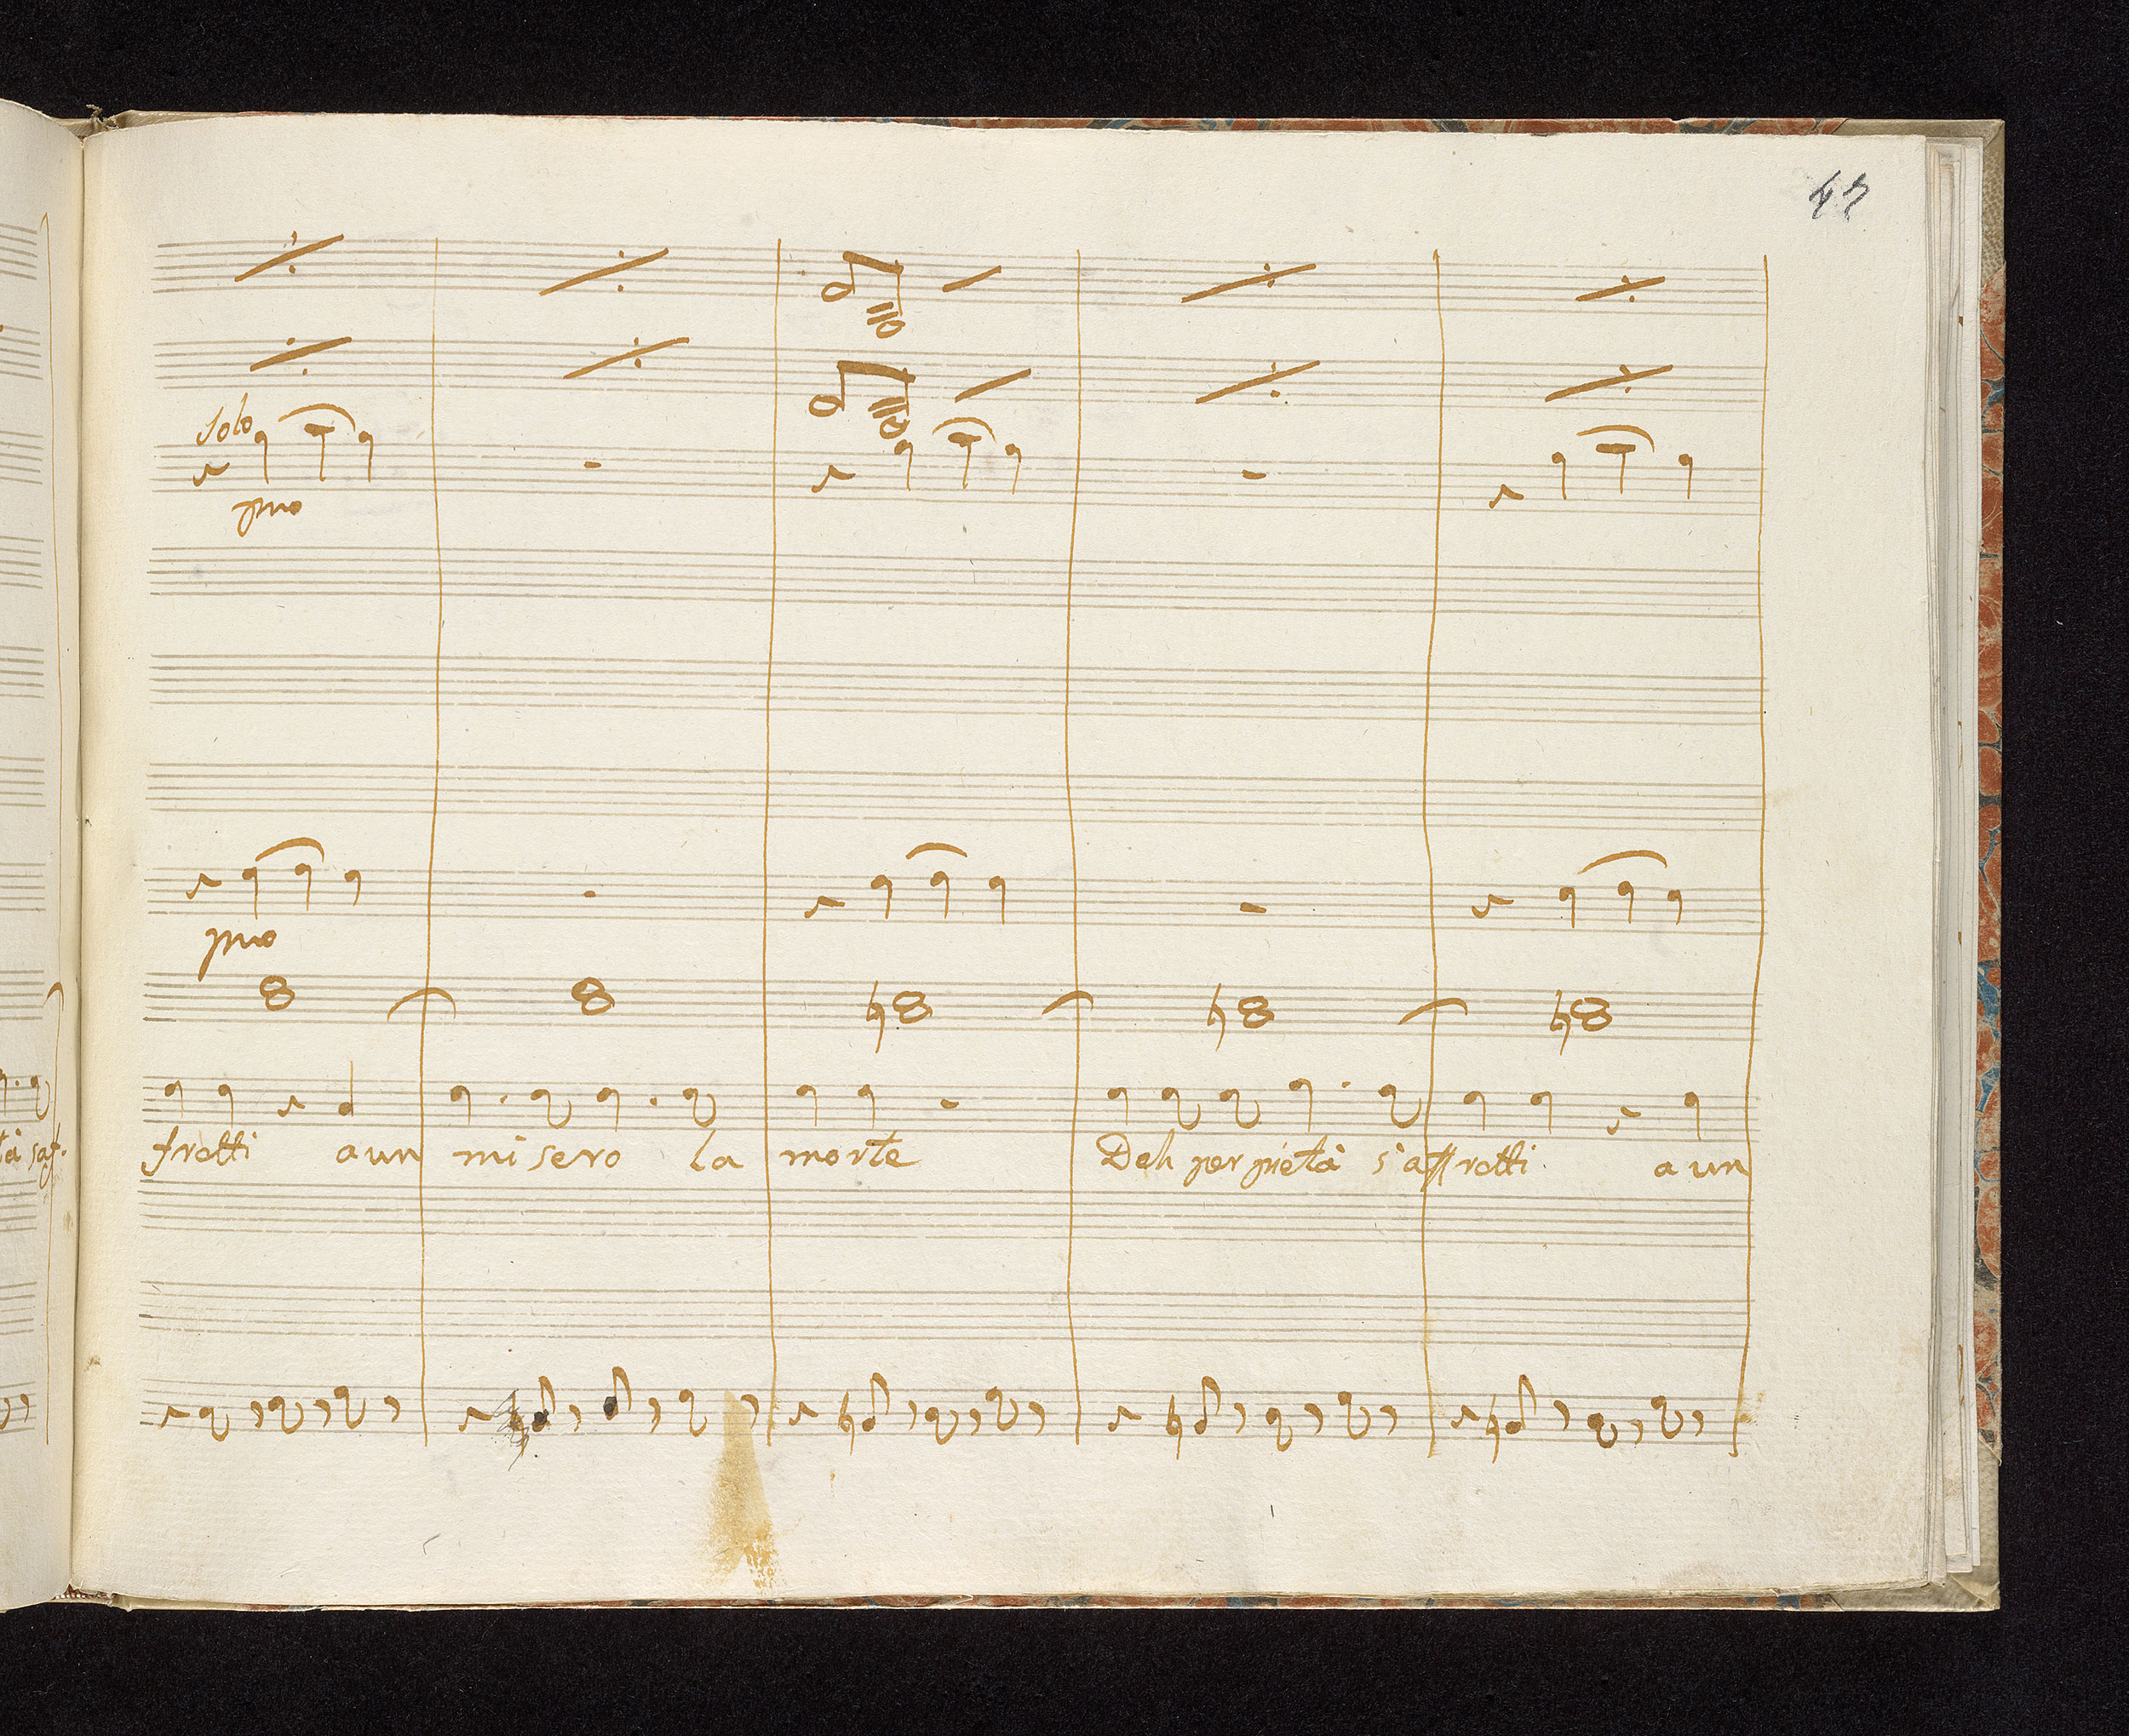 47
Solo
pmo
pmo
tà saf.
fretti a un misero la morte Deh per pietà s'affretti a un